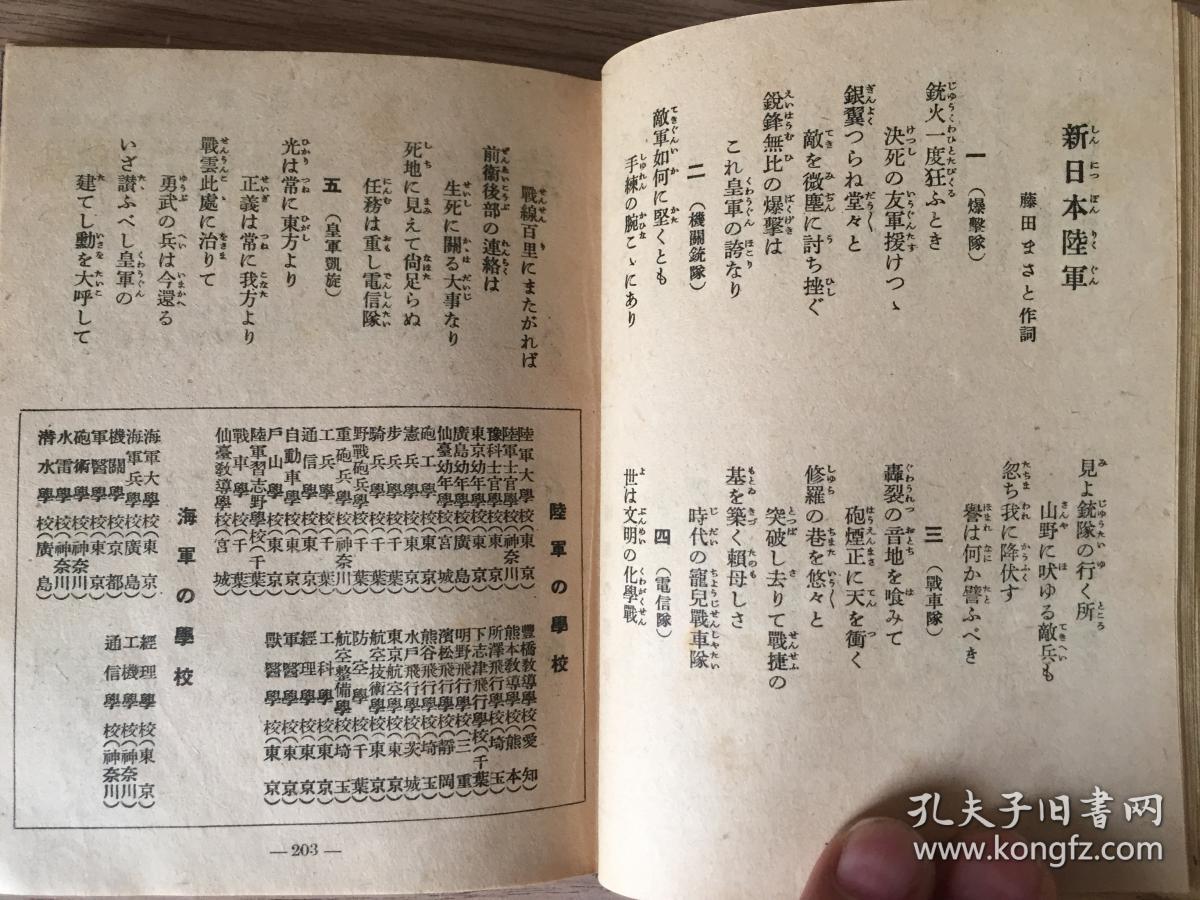 新日本陸軍
藤田まさと作詞
一(爆擊隊)
銃火一度狂ふとき
決死の友軍援けつゝ
銀翼つらね堂々と
敵を微塵に討ち挫ぐ
銳鋒無比の爆擊は
これ皇軍の誇なり
二(機關銃隊)
敵軍如何に堅くとも
手練の腕こゝにあり
見よ銃隊の行く所
山野に吠ゆる敵兵も
忽ち我に降伏す
譽は何か譬ふべき
三(戰車隊)
轟裂の音地を喰みて
砲煙正に天を衝く
修羅の巷を悠々と
突破し去りて戰捷の
基を築く賴母しさ
時代の寵兒戰車隊
四(電信隊)
世は文明の化學戰
戰線百里にまたがれば
前衛後部の連絡は
生死に關る大事なり
死地に見えて尙足らぬ
任務は重し電信隊
五(皇軍凱旋)
光は常に東方より
正義は常に我方より
戰雲此處に治りて
勇武の兵は今還る
いざ讃ふべし皇軍の
建てし勳を大呼して
陸軍の學校
陸軍大學校(東京)
陸軍士官學校(神奈川)
豫科士官學校(東京)
東京幼年學校(東京)
廣島幼年學校(廣島)
仙臺幼年學校(宮城)
砲工學校(東京)
憲兵學校(東京)
步兵學校(千葉)
騎兵學校(千葉)
野戰砲兵學校(千葉)
重砲兵學校(神奈川)
工兵學校(千葉)
通信學校(東京)
自動車學校(東京)
戶山學校(東京)
陸軍習志野學校(千葉)
戰車學校(千葉)
仙臺敎導學校(宮城)
豐橋敎導學校(愛知)
熊本敎導學校(熊本)
所澤飛行學校(埼玉)
下志津飛行學校(千葉)
明野飛行學校(三重)
濱松飛行學校(靜岡)
熊谷飛行學校(埼玉)
水戶飛行學校(茨城)
東京航空學校(東京)
航空技術學校(東京)
防空學校(千葉)
航空整備學校(埼玉)
工科學校(東京)
經理學校(東京)
軍醫學校(東京)
獸醫學校(東京)
海軍の學校
海軍大學校(東京)
海軍兵學校(廣島)
機關學校(京都)
軍醫學校(東京)
砲術學校(神奈川)
水雷學校(神奈川)
潛水學校(廣島)
經理學校(東京)
工機學校(神奈川)
通信學校(神奈川)
—203—
孔夫子旧书网
www.kongfz.com